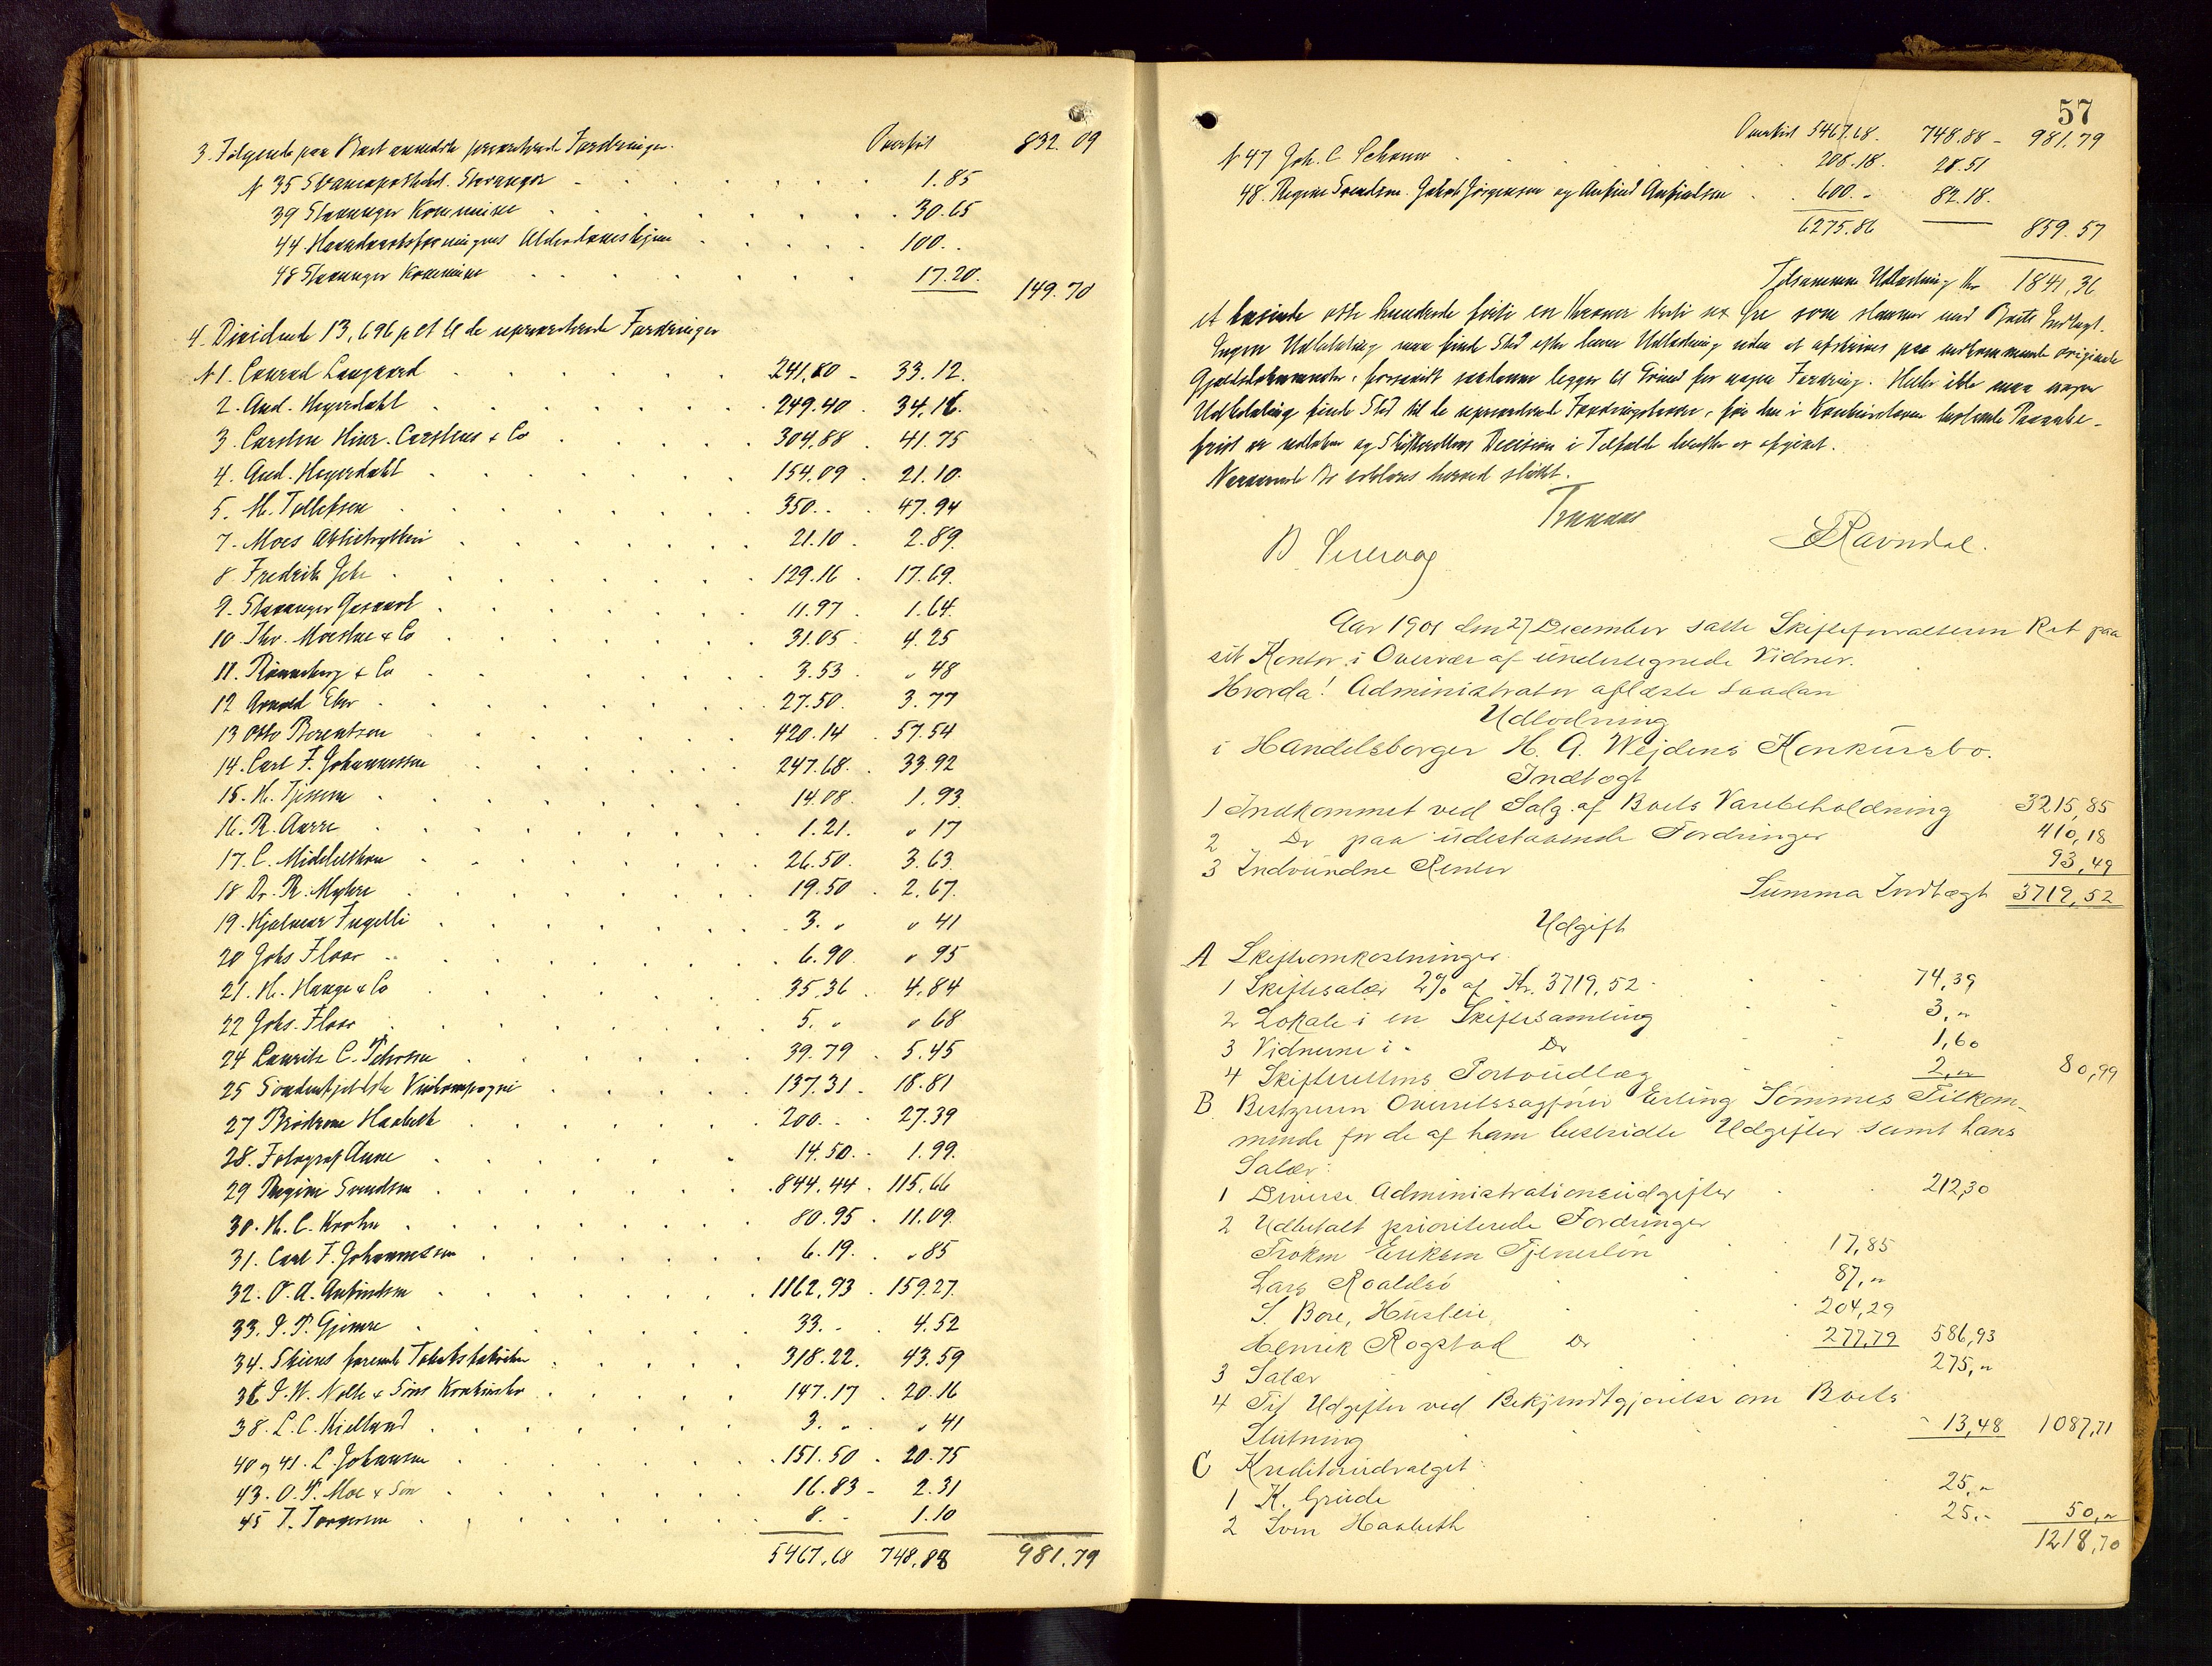 3. Følgende paa Boet anmeldte prioriterede Fordringer. Overført 832.09
N 35 Stavanger 1.85
39 Stavanger Kommune 30.65
44 Haandværksforeningens Alderdomshjem 100..
48 Stavanger Kommune 17.20. 149.70
4. Dividende 13,696 pct til de uprioriterede Fordringer
N 1. Conrad Langaard 241.80 - 33.12.
2. And. Heyerdahl 249.40. 34.16.
3. Carsten Hinr. Carstens & Co 304.88. 41.75
4. And. Heyerdahl 154.09. 21.10.
5. M. Tollefsen 350.. 47.94
7. Moes Aktietrykkeri 21.10. 2.89.
8. Fredrik 129.16. 17.69.
9. Stavanger Gasværk 11.97. 1.64.
10. Thv. Moestue & Co 31.05. 4.25
11. Rønneberg & Co 3.53 " 48
12 Arnold 27.50. 3.77
13 Otto Berentsen 420.14. 57.54
14. Carl F. Johannessen 247.68. 33.92
15. H. 14.08. 1.93.
16. R. Aarre 1.21. " 17
17. C. Middelthon 26.50. 3.63.
18 Dr. R. Myhre 19.50. 2.67.
19. Hjalmar Fugelli 3. " " 41
20 Johs Floor 6.90. " 95
21. H. Hauge & Co 35.36. 4.84
22 Johs. Floor 5. " " 68
24 Lauritz C. 39.79. 5.45
25 Søndenfjeldske Vinkompagni 137.31. 18.81
27 Brødrene Haabeth 200.. 27.39
28. Fotograf Aune 14.50. 1.99.
29 Regine Svendsen 844.44. 115.66
30. H. C. Krohn 80.95. 11.09.
31. Carl F. Johannessen 6.19. " 85
32. O. A. Anfindsen 1162.93. 159.27.
33. P. T. Gjemre 33. - 4.52
34. Skiens forenede Tobaksfabriker 318.22. 43.59
36 P. W. Nolte & Søns Konkursbo 147.17. 20.16
38. L. C. Kielland 3. - " 41
40 og 41. L. Johansen 151.50. 20.75
43. O. T. Moe & Søn 16.83 - 2.31
45 T. Torgersen 8. - 1.10
5467.68 748.88 981.79
57
Overført 5467.68. 748.88 - 981.79
N 47 Joh. C. Schanu 208.18. 28.51
48. Regine Svendsen. Jakob Jørgensen og Anfind Anfindsen 600. - 82.18.
6275.86 859.57
Tilsammen Udlodning Kr 1841,36
et tusinde otte hundrede firti en Kroner treti sex Øre som stemmer med Boets Indtægt.
Ingen Udbetaling maa finde Sted efter denne Udlodning uden at afskrives paa vedkommende originale
Gjældsdokumenter, forsaavidt saadanne ligger til Grund for nogen Fordring. Heller ikke maa nogen
Udbetaling finde Sted til de uprioriterede Fordringshavere, før den i Konkursloven bestemte Paaanke-
frist er udløben og Skifterettens Decision i Tilfælde derefter er afgivet.
Nærværende Bo erklæres herved sluttet.
Tranaas
B. Sørvaag S Ravndal.
Aar 1901 den 27 December satte Skifteforvalteren Ret paa
sit Kontor i Overvær af undertegnede Vidner.
Hvorda! Administrator aflæste saadan
Udlodning
i Handelsborger H. G. Wejdens Konkursbo.
Indtægt
1 Indkommet ved Salg af Boets Varebeholdning 3215,85
2 Do paa udestaaende Fordringer 410,18
3 Indvundne Renter 93,49
Summa Indtægt 3719,52
Udgift
A Skifteomkostninger.
1 Skiftesalær 2% af Kr. 3719,52. 74,39
2 Lokale i en Skiftesamling 3,"
3 Vidnerne i - Do 1,60
4 Skifterettens Portoudlæg 2," 80,99
B. Bestyreren Overretssagfører Erling Sømmes Tilkom-
mende for de af ham bestridte Udgifter samt hans
Salær:
1 Diverse Administrationsudgifter 212,30
2 Udbetalt prioriterede Fordringer
Frøken Eriksen Tjenerløn 17,85
Lars Roaldsø 87,"
S. Bore, Husleie 204,29
Henrik Rogstad Do 277,79 586,93
3 Salær 275,"
4 Til Udgifter ved Bekjendtgjørelse om Boets
Slutning 13,48 1087,71
C Kreditorudvalget:
1 K. Grude 25,"
2 Sven Haabeth 25,- 50,"
1218,70